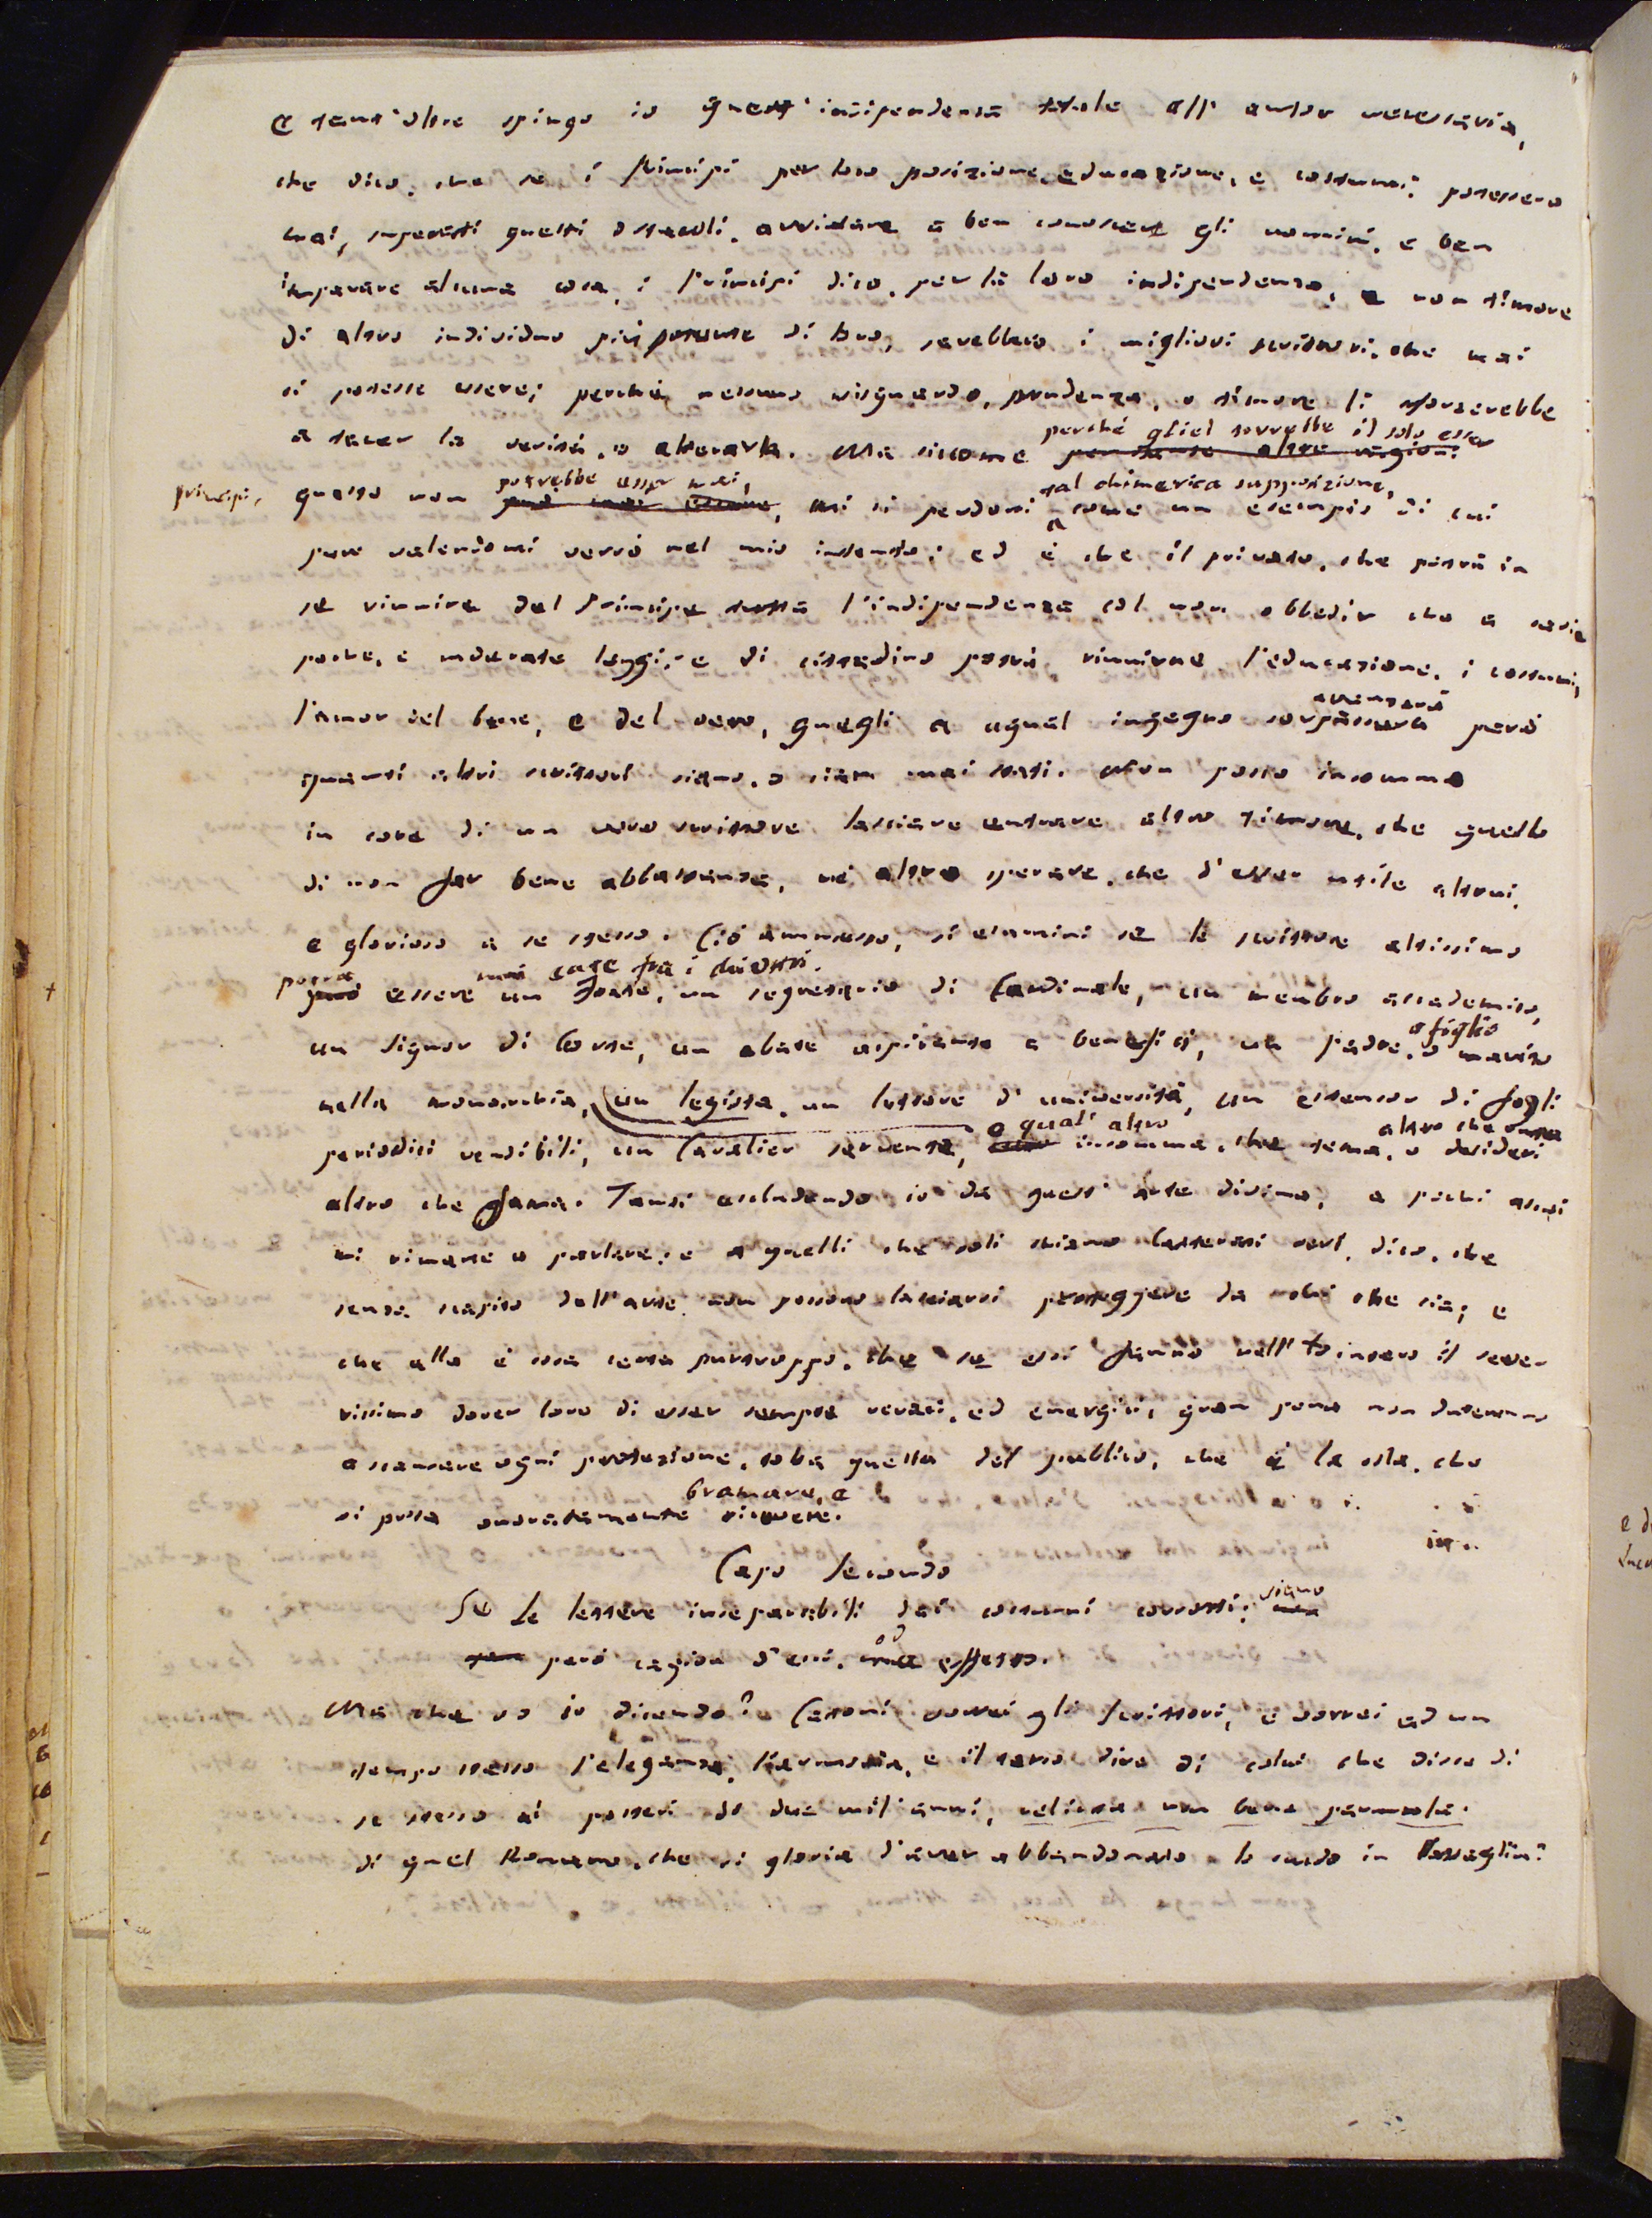 E tant'oltre spingo io quest'indipendenza totale all'autor necessaria,
che dico, che se i Principi per loro posizione, educazione, e costumi potessero
mai, superati questi ostacoli, arrivare a ben conoscere gli uomini, e ben
imparare alcuna cosa, i Principi dico, per la loro indipendenza, e non timore
di altro individuo più potente di loro, sarebbero i migliori scrittori, che mai
si potesse essere; perchè nessuno risguardo, prudenza, o timore li sforzerebbe
perché gliel torrebbe il solo esser
a tacer la verità, o alterarla. Ma siccome per tante altre ragioni
principi,
potrebbe esser mai, tal chimerica supposizione,
questo non può mai essere, mi si perdoni come un esempio di cui
pure valendomi verrò nel mio intento; ed è che il privato, che potrà in
se riunire del Principe tutta l'indipendenza col non obbedir che a savie
poche, e moderate leggi, e di cittadino potrà riunirne l'educazione, i costumi,
avanzerà
l'amor del bene, e del vero, quegli a egual ingegno sorpasserà però
quanti altri scrittori siano, o sian mai stati. Non posso insomma
in core di un vero scrittore lasciare entrare altro timore, che quello
di non far bene abbastanza, nè altro sperare, che d'esser utile altrui,
e glorioso a se stesso. Ciò ammesso, si esamini se lo scrittore altissimo
potrà
può essere un frate, un segretario di Cardinale, un membro accademico,
o figlio
un Signor di Corte, un abate aspirante a benefici, un padre, o marito
nella monarchia, un legista, un lettore d'università, un estensor di fogli
o qual' altro altro che
periodici vendibili, un Cavalier servente, insomma, che tema, o desideri
altro che fama. Tanti escludendo io da quest'arte divina, a pochi assai
mi rimane a parlare; e a quelli che soli chiamo letterati veri, dico, che
senza scapito dell'arte non possono lasciarsi proteggere da chi che sia; e
che ella è cosa certa purtroppo, che se essi fanno nell'intero il sever
rissimo dover loro di esser sempre veraci, ed energici, gran pena non dureranno
a scansare ogni protezione, tolta quella del pubblico, che è la sola, che
bramare, e
si possa onoratamente ricevere.
Capo Secondo
Se le lettere inseparabili dai costumi corrotti; siano
però cagion d'essi, o effetto.
Ma che vo io dicendo? Catoni vorrei gli Scrittori, e vorrei ad un
tempo stesso l'eleganza, l'armonia, e il terso dire di colui che disse di
se stesso ai posteri da due mil'anni, relicta non bene parmula.
di quel Romano, che si gloria d'aver abbandonato lo scudo in Battaglia?